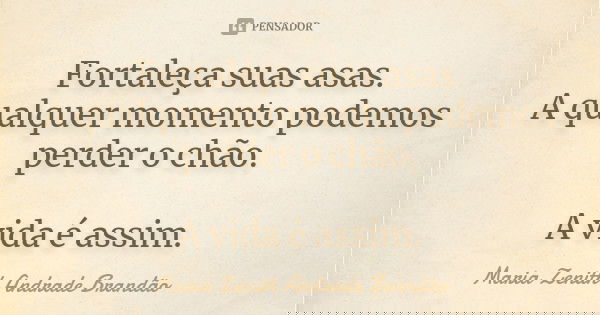 PENSADOR
Fortaleça suas asas.
A qualquer momento podemos
perder o chão.
A vida é assim.
Maria Zenith Andrade Brandão